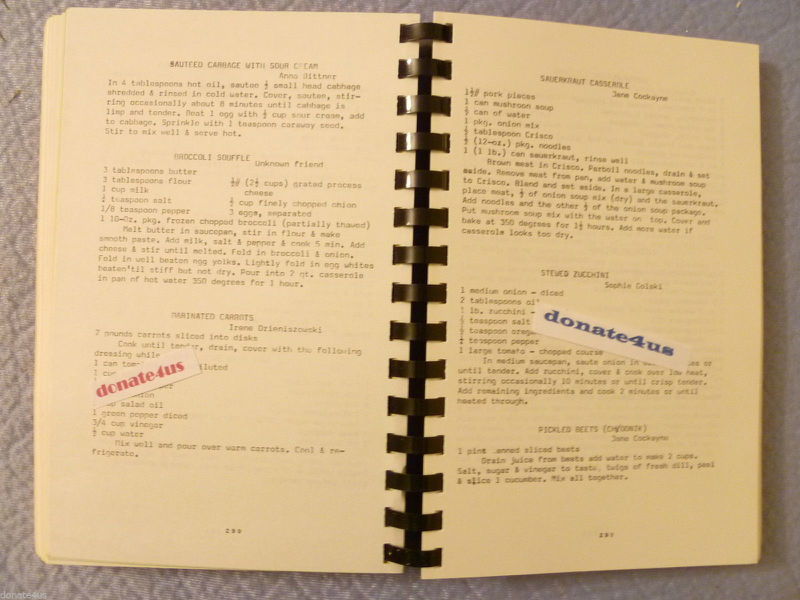 SAUTEED CABBAGE WITH SOUR CREAM
Anna Dittner
In 4 tablespoons hot oil, sautee ½ small head cabbage
shredded & rinsed in cold water. Cover, sautee, stir-
ring occasionally about 8 minutes until cabbage is
limp and tender. Beat 1 egg with ½ cup sour cream, add
to cabbage. Sprinkle with 1 teaspoon caraway seed.
Stir to mix well & serve hot.
BROCCOLI SOUFFLE
Unknown friend
3 tablespoons butter
3 tablespoons flour
(2½ cups) grated process
1 cup milk
cheese
teaspoon salt
½ cup finely chopped onion
1/8 teaspoon pepper
3 eggs, separated
1 10-Oz. pkg. frozen chopped broccoli (partially thawed)
Melt butter in saucepan, stir in flour & make
smooth paste. Add milk, salt & pepper & cook 5 min. Add
cheese & stir until melted. Fold in broccoli & onion.
Fold in well beaten egg yolks. Lightly fold in egg whites
beaten'til stiff but not dry. Pour into 2 qt. casserole
in pan of hot water 350 degrees for 1 hour.
MARINATED CARROTS
Irene Dzieniszowski
2 pounds carrots sliced into disks
Cook until tender, drain, cover with the following
dressing while
1 can
1
donate4us
salad oil
1 green pepper diced
3/4 cup vinegar
½ cup water
Mix well and pour over warm carrots. Cool & re-
frigerate.
290
SAUERKRAUT CASSEROLE
Jane Cockayne
1½# pork pieces
1 can mushroom soup
½ can of water
1 pkg. onion mix
tablespoon Crisco
½ (12-oz.) pkg. noodles
1 (1 lb.) can sauerkraut, rinse well
Brown meat in Crisco. Parboil noodles, drain & set
aside. Remove meat from pan, add water & mushroom soup
to Crisco. Blend and set aside. In a large casserole,
place meat, ½ of onion soup mix (dry) and the sauerkraut.
Add noodles and the other ½ of the onion soup package.
Put mushroom soup mix with the water on top. Cover and
bake at 350 degrees for 1½ hours. Add more water if
casserole looks too dry.
STEWED ZUCCHINI
Sophie Golski
1 medium onion - diced
2 tablespoons
1 lb. zucchini -
teaspoon salt
teaspoon
teaspoon pepper
donate4us
1 large tomato - chopped course
In medium saucepan, saute onion in or
until tender. Add zucchini, cover & cook over low heat,
stirring occasionally 10 minutes or until crisp tender.
Add remaining ingredients and cook 2 minutes or until
heated through.
PICKLED BEETS
Jane Cockayne
1 pint canned sliced beets
Drain juice from beets add water to make 2 cups.
Salt, sugar & vinegar to taste, twigs of fresh dill, peel
& slice 1 cucumber. Mix all together.
291
donate4us